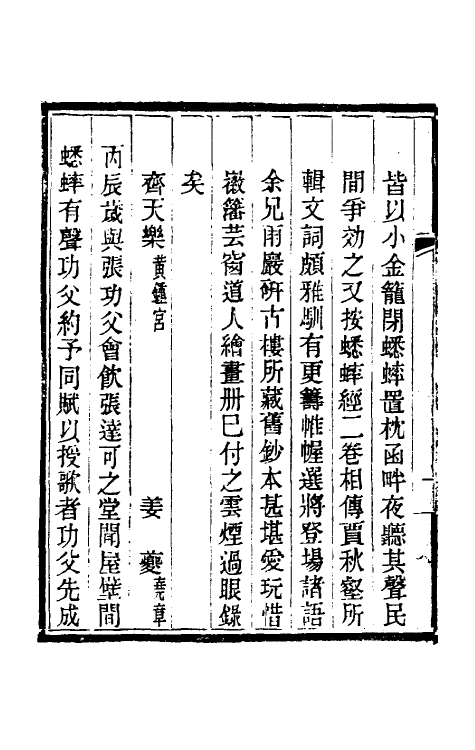 皆以小金籠閉蟋蟀置枕函畔夜聽其聲民
間爭効之又按蟋蟀經二卷相傳賈秋壑所
輯文詞頗雅馴有更籌帷幄選將登場諸語
余兄雨巖硏古樓所藏舊鈔本甚堪愛玩惜
嶶籓芸窗道人繪畫册已付之雲煙過眼錄
矣
齊天樂黃鍾宮 姜夔堯章
丙辰歲與張功父會飮張達可之堂聞屋壁間
蟋蟀有聲功父約予同賦以授歌者功父先成